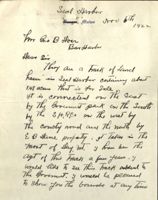 Seal Harbor
Maine, Nov 6th
1922
Mr Geo B Dorr
Bar Harbor
Dear Sir
There are a track of land
here in Seal Harbor containing about
acres that is for Sale
it is connected on the East
by the Government park on the South
by the on the west by
the county road and the north by
property. it takes in the
most of I am the
agt of this track a few years. I
would like to see this track added to
the Government. I would be pleased
to show you the bounds at any time